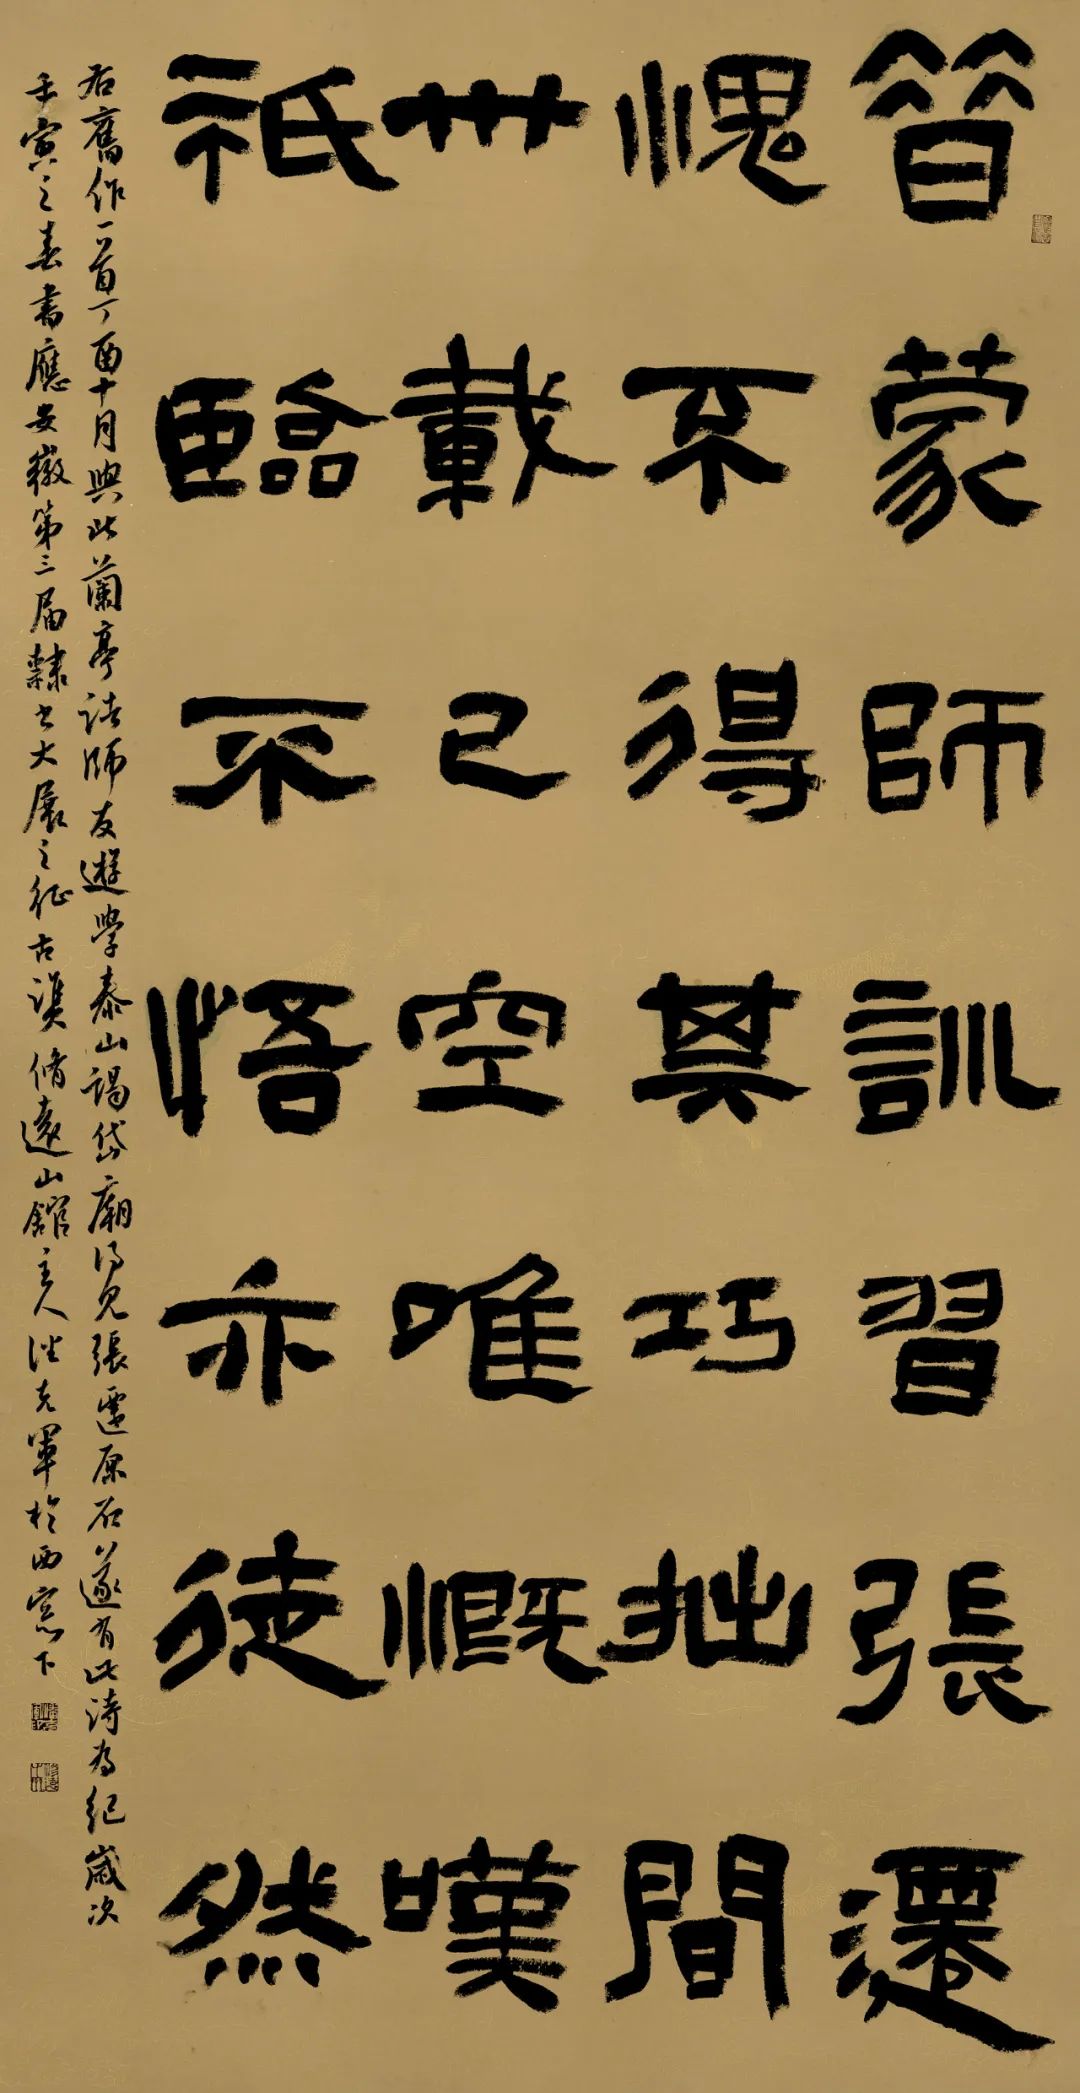 昔蒙師訓習張遷
愧不得其巧拙間
卅載已空唯慨嘆
祇臨不悟亦徒然
右舊作一首丁酉十月與此蘭亭諸師友遊學泰山謁岱廟得見張遷原石遂有此詩為紀歲次
壬寅之春書應安徽第三届隸書大展之征古潢脩遠山館主人克軍於西窗下